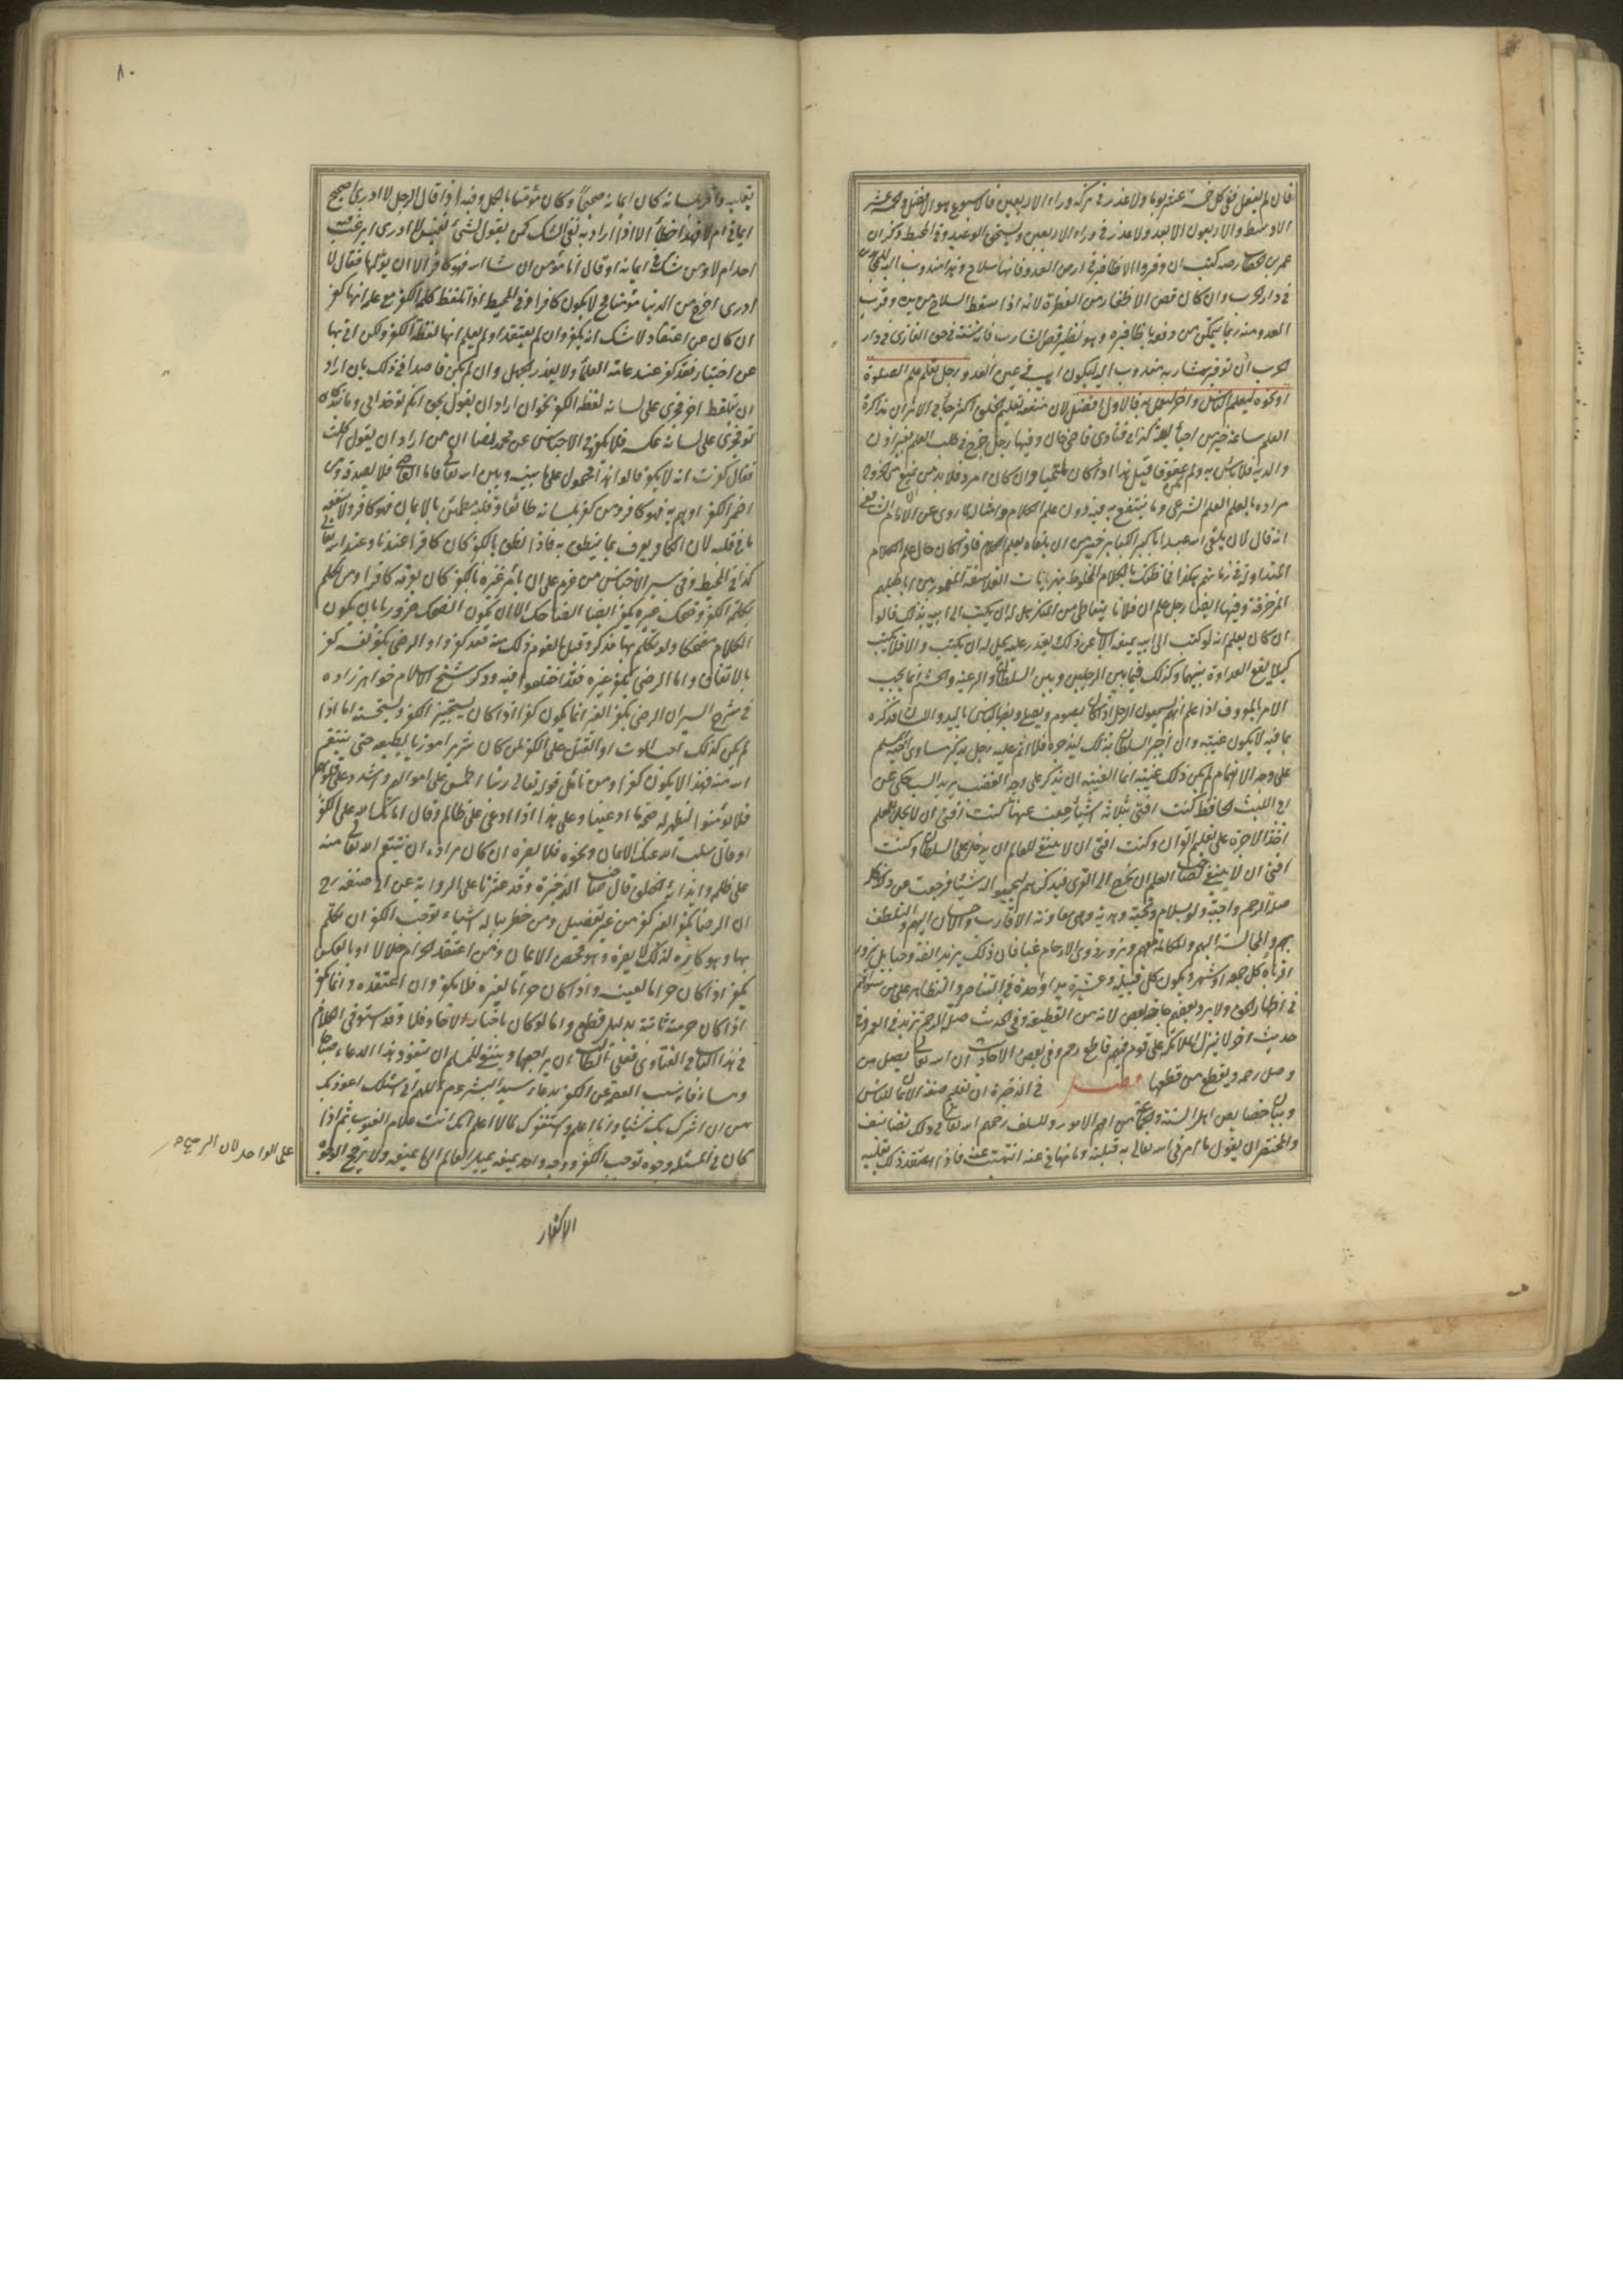 فان لم يفعل ففى كل خمسة عشر يوما ولا عذر فى تركه وراء الاربعين فالاسبوع هو الافضل والخمسة عشر
الاوسط والاربعون الابعد ولا عذر فى وراء الاربعين ويستحق الوعيد وفى المحيط ذكر ان
عمر بن الخطاب رضه كتب ان وفروا الاظافير فى ارض العدو فانها سلاح وهذا مندوب اليه للمجاهدين
فى دار الحرب وان كان قص الاظفار من الفطرة لانه اذا سقط السلاح من يده وقرب
العدو منه ربما يتمكن من دفعه باظافيره وهو نظير قص الشارب فانه سنة فى حق الغازى فى دار
الحرب ان توفير شاربه مندوب اليه ليكون اهيب فى عين العدو رجل تعلم علم الصلوة
او نحوه ليعلم الناس واخر ليعمل به فالاول افضل لان منفعة تعليم الخلق اكثر جاء فى الاثر ان مذاكرة
العلم ساعة خير من احياء ليلة كذا فى فتاوى قاضى خان وفيها رجل خرج فى طلب العلم بغير اذن
والديه فلا بأس به ولم يكن عقوقا قيل هذا اذا كان ملتحيا وان كان امرد فلابد من ان يمنع من الخروج
مراده بالعلم العلم الشرعى وما ينتفع به فيه دون علم الكلام وامثاله لما روى عن الامام الشافعى
انه قال لان يلقى الله عبد باكبر الكبائر خير من ان يلقاه بعلم الكلام فاذا كان حال علم الكلام
المتداول فى زمانهم هكذا فما ظنك بالكلام المخلوط بهذيانات الفلاسفة المغمور بين اباطيلهم
المزخرفة وفيها ايضا رجل علم ان فلانا يتعاطى من المنكر هل له ان يكتب الى ابيه بذلك قالوا
ان كان يعلم انه لو كتب الى ابيه يمنعه الاب عن ذلك ويقدر عليه يحل له ان يكتب والا فلا يكتب
كيلا يقع العداوة بينهما وكذلك فيما بين الزوجين وبين السلطان والرعية والحشم انما يجب
الامر بالمعروف اذا علم انهم يسمعون الرجل اذا كان يصوم ويصلى ويضر الناس باليد واللسان فذكره
بما فيه لا يكون غيبة وان اخبر السلطان بذلك ليزجره فلا اثم عليه رجل يذكر مساوى اخيه المسلم
على وجه الاهتمام لم يكن ذلك غيبة انما الغيبة ان يذكر على وجه الغضب يريد السب حكى عن
ابى الليث الحافظ كنت افتى بثلاثة اشياء رجعت عنها كنت افتى ان لا يحل للمعلم
اخذ الاجرة على تعليم القران وكنت افتى ان لا ينبغى للعالم ان يدخل على السلطان وكنت
افتى ان لا ينبغى لصاحب العلم ان يخرج الى القرى فيذكرهم ليجمعوا له شيئا فرجعت عن ذلك كله
صلة الرحم واجبة ولو بسلام وتحية وهدية وهى معاونة الاقارب والاحسان اليهم والتلطف
بهم والمجالسة اليهم والمكالمة معهم ويزور ذوى الارحام غبا فان ذلك يزيد الفة وحبا بل يزور
اقرباءه كل جمعة او شهر ويكون كل قبيلة وعشيرة يدا واحدة فى التناصر والتظاهر على من سواهم
فى اظهار الحق ولا يرد بعضهم حاجة بعض لانه من القطيعة وفى الحديث صلة الرحم تزيد فى العمر وفى
حديث اخر لا ينزل الملائكة على قوم فيهم قاطع رحم وفى بعض الاحاديث ان الله تعالى يصل من
وصل رحمه ويقطع من قطعها فصل فى الذخيرة ان تعليم صفة الايمان للناس
وبيان خصايص اهل السنة والجماعة من اهم الامور وللسلف رحمهم الله تعالى فى ذلك تصانيف
والمختصر ان يقول ما امرنى الله تعالى به قبلته وما نهانى عنه انتهيت عنه فاذا اعتقد ذلك بقلبه
٨٠
بقلبه واقر بلسانه كان ايمانه صحيحا وكان مؤمنا بالكل وفيه اذا قال الرجل لا ادرى اصحيح
ايمانى ام لا فهذا خطأ الا اذا اراد به نفى الشك كمن يقول لشئ نفيس لا ادرى ايرغب فيه
احد ام لا ومن شك فى ايمانه او قال انا مؤمن ان شاء الله فهو كافر الا ان يؤولها فقال لا
ادرى اخرج من الدنيا مؤمنا فح لا يكون كافرا وفى المحيط اذا تلفظ كلمة الكفر مع علمه انها كفر
ان كان عن اعتقاد لا شك انه يكفر وان لم يعتقد او لم يعلم انها لفظة الكفر ولكن اتى بها
عن اختيار فقد كفر عند عامة العلماء ولا يعذر بالجهل وان لم يكن قاصدا فى ذلك بان اراد
ان يتلفظ اخر فجرى على لسانه لفظة الكفر نحو ان اراد ان يقول بحق انكه تو خدائى وما بندكان
تو فجرى على لسانه عكسه فلا يكفر وفى الاجناس عن محمد نصا ان من اراد ان يقول اكلت
فقال كفرت انه لا يكفر قالوا هذا محمول على ما بينه وبين الله تعالى فاما القاضى فلا يصدقه ومن
اضمر الكفر او هم به فهو كافر ومن كفر بلسانه طائعا وقلبه مطمئن بالايمان فهو كافر ولا ينفعه
ما فى قلبه لان الكافر يعرف بما ينطق به فاذا نطق بالكفر كان كافرا عندنا وعند الله تعالى
كذا فى المحيط وفى سير الاجناس من عزم على ان يأمر غيره بالكفر كان بعزمه كافرا ومن تكلم
بكلمة الكفر وضحك غيره يكفر ايضا الضاحك الا ان يكون الضحك ضروريا بان يكون
الكلام مضحكا ولو تكلم بها مذكر وقبل القوم ذلك منه فقد كفروا والرضى بكفر نفسه كفر
بالاتفاق واما الرضى بكفر غيره فقد اختلفوا فيه وذكر شيخ الاسلام خواهر زاده
فى شرح السير ان الرضى بكفر الغير انما يكون كفرا اذا كان يستجيز الكفر ويستحسنه اما اذا
لم يكن كذلك احب الموت او القتل على الكفر لمن كان شريرا موذيا بطبعه حتى ينتقم
الله منه فهذا لا يكون كفرا ومن تامل قوله تعالى ربنا اطمس على اموالهم واشدد على قلوبهم
فلا يؤمنوا يظهر له صحة ما ادعينا وعلى هذا اذا دعى على ظالم وقال اماتك الله على الكفر
او قال سلب الله عنك الايمان ونحوه فلا يضره ان كان مراده ان ينتقم الله تعالى منه
على ظلمه وايذائه الخلق قال صاحب الذخيرة وقد عثرنا على الرواية عن ابى حنيفة رح
ان الرضا بكفر الغير كفر من غير تفصيل ومن خطر بباله اشياء توجب الكفر ان تكلم
بها وهو كاره لذلك لا يضره وهو محض الايمان ومن اعتقد الحرام حلالا او بالعكس
يكفر اذا كان حراما لعينه واذا كان حراما لغيره فلا يكفر وان اعتقده وانما يكفر
اذا كان حرمته ثابتة بدليل قطعى واما لو كان باخبار الاحاد فلا وقد استوفى الكلام
فى هذا الكتاب فى الفتاوى فعلى الطالب ان يراجعها وينبغى للمسلم ان يتعوذ بهذا الدعاء صباحا
ومساء فانه سبب العصمة عن الكفر بدعاء سيد البشر عم اللهم انى اعوذ بك
من ان اشرك بك شيئا وانا اعلم واستغفرك لما لا اعلم انك انت علام الغيوب ثم اذا
كان فى المسئلة وجوه توجب الكفر ووجه واحد يمنعه يميل العالم الى ما يمنعه ولا يرجح الوجوه
على الواحد لان الترجيح
الاكفار